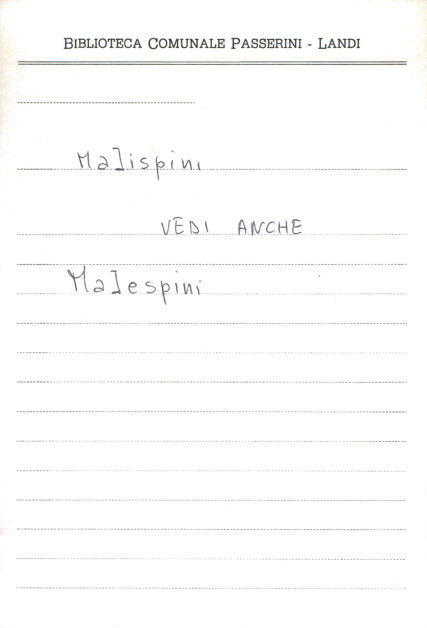 BIBLIOTECA COMUNALE PASSERINI - LANDI
Malispini
VEDI ANCHE
Malespini